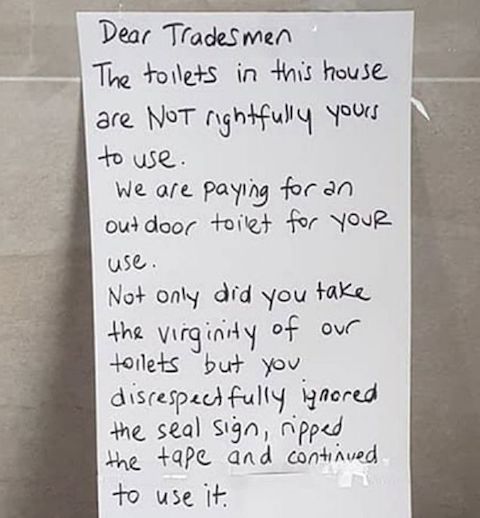 Dear Tradesmen
The toilets in this house
are NOT rightfully yours
to use.
We are paying for an
outdoor toilet for YOUR
use.
Not only did you take
the virginity of our
toilets but you
disrespectfully ignored
the seal sign, ripped
the tape and continued
to use it.